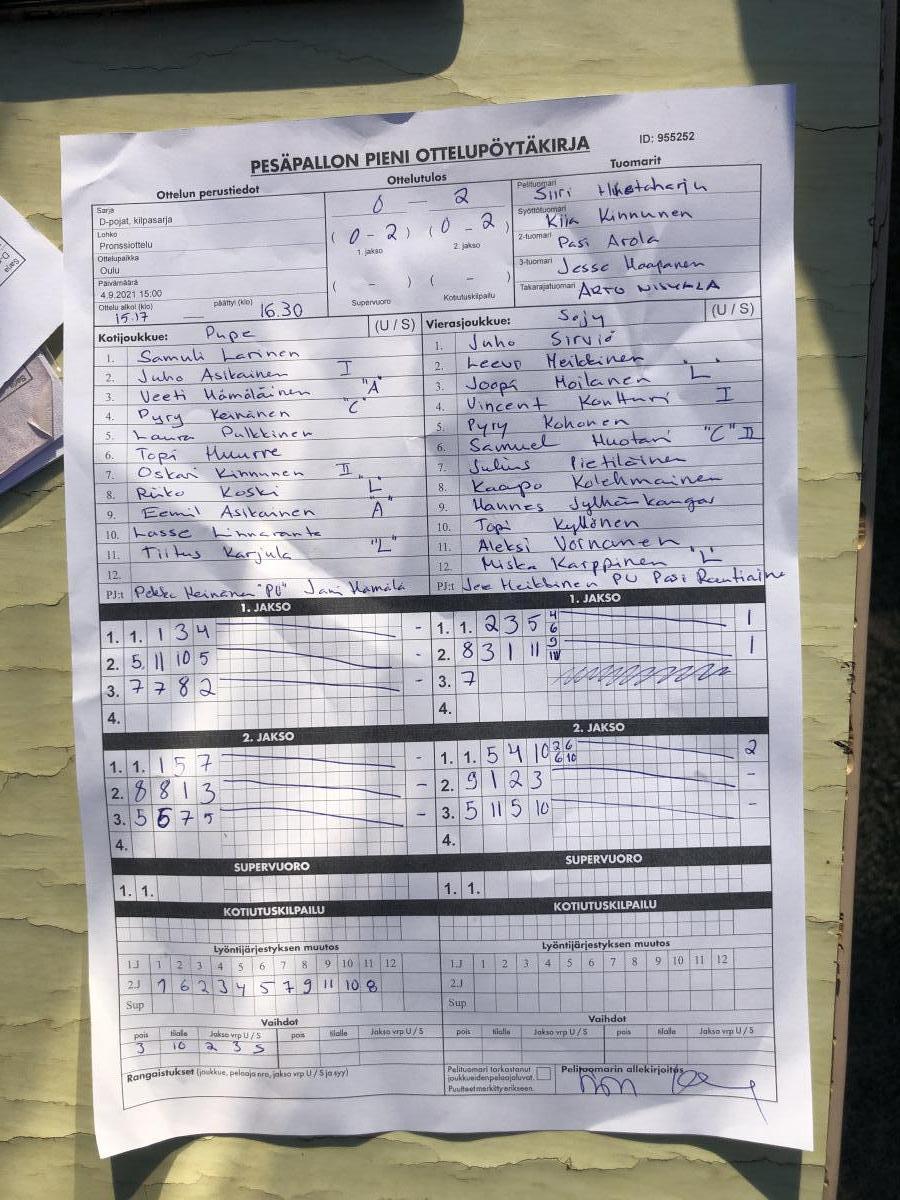 PESÄPALLON PIENI OTTELUPÖYTÄKIRJA
ID: 955252
Ottelun perustiedot
Ottelutulos
Tuomarit
Sarja
D-pojat, kilpasarja
Lohko
Pronssiottelu
Ottelupaikka
Oulu
Päivämäärä
4.9.2021 15:00
Ottelu alkoi (klo) päättyi (klo)
15.17 16.30
0 - 2
(0-2) (0-2)
1. jakso 2. jakso
( - ) ( - )
Supervuoro Kotiutuskilpailu
Pelituomari Siiri
Syöttötuomari Kiia Kinnunen
2-tuomari Pasi Arola
3-tuomari Jesse Haapanen
Takarajatuomari ARTO NISKALA
Kotijoukkue: Pupe (U / S)
1. Samuli Larinen
2. Juho Asikainen I
3. Veeti Hämäläinen "A"
4. Pyry Keinänen "C"
5. Laura Pulkkinen
6. Topi Huurre
7. Oskari Kinnunen II
8. Riko Koski "L"
9. Eemil Asikainen A
10. Lasse Linnaranta
11. Tiitus Karjula "L"
12.
PJ:t Pekka Keinänen "PJ" Jani Hämälä
Vierasjoukkue: Sojy (U / S)
1. Juho Sirviö
2. Leevo Heikkinen
3. Joopi Moilanen "L"
4. Vincent Kontturi I
5. Pyry Kohonen
6. Samuel Huotari "C" II
7. Julius Pietiläinen
8. Kaapo Kolehmainen
9. Hannes Jylhänkangas
10. Topi Kyllönen
11. Aleksi Vornanen
12. Miska Karppinen "L"
PJ:t Jere Heikkinen PJ Pasi Rautiainen
1. JAKSO
1. 1. 1 3 4 -
2. 5 11 10 5 -
3. 7 7 8 2 -
4.
1. JAKSO
1. 1. 2 3 5 4 6 1
2. 8 3 1 11 9 10 1
3. 7
4.
2. JAKSO
1. 1. 1 5 7 -
2. 8 8 1 3 -
3. 5 6 7 5 -
4.
2. JAKSO
1. 1. 5 4 10 2 6 6 10 2
2. 9 1 2 3 -
3. 5 11 5 10 -
4.
SUPERVUORO
1. 1.
SUPERVUORO
1. 1.
KOTIUTUSKILPAILU
KOTIUTUSKILPAILU
Lyöntijärjestyksen muutos
1.J 1 2 3 4 5 6 7 8 9 10 11 12
2.J 1 6 2 3 4 5 7 9 11 10 8
Sup
Lyöntijärjestyksen muutos
1.J 1 2 3 4 5 6 7 8 9 10 11 12
2.J
Sup
Vaihdot
pois tilalle Jakso vrp U / S pois tilalle Jakso vrp U / S
3 10 2 3 S
Vaihdot
pois tilalle Jakso vrp U / S pois tilalle Jakso vrp U / S
Rangaistukset (joukkue, pelaaja nro, jakso vrp U / S ja syy)
Pelituomari tarkastanut
joukkueiden pelaajaluvat.
Puutteet merkitty erikseen.
Pelituomarin allekirjoitus